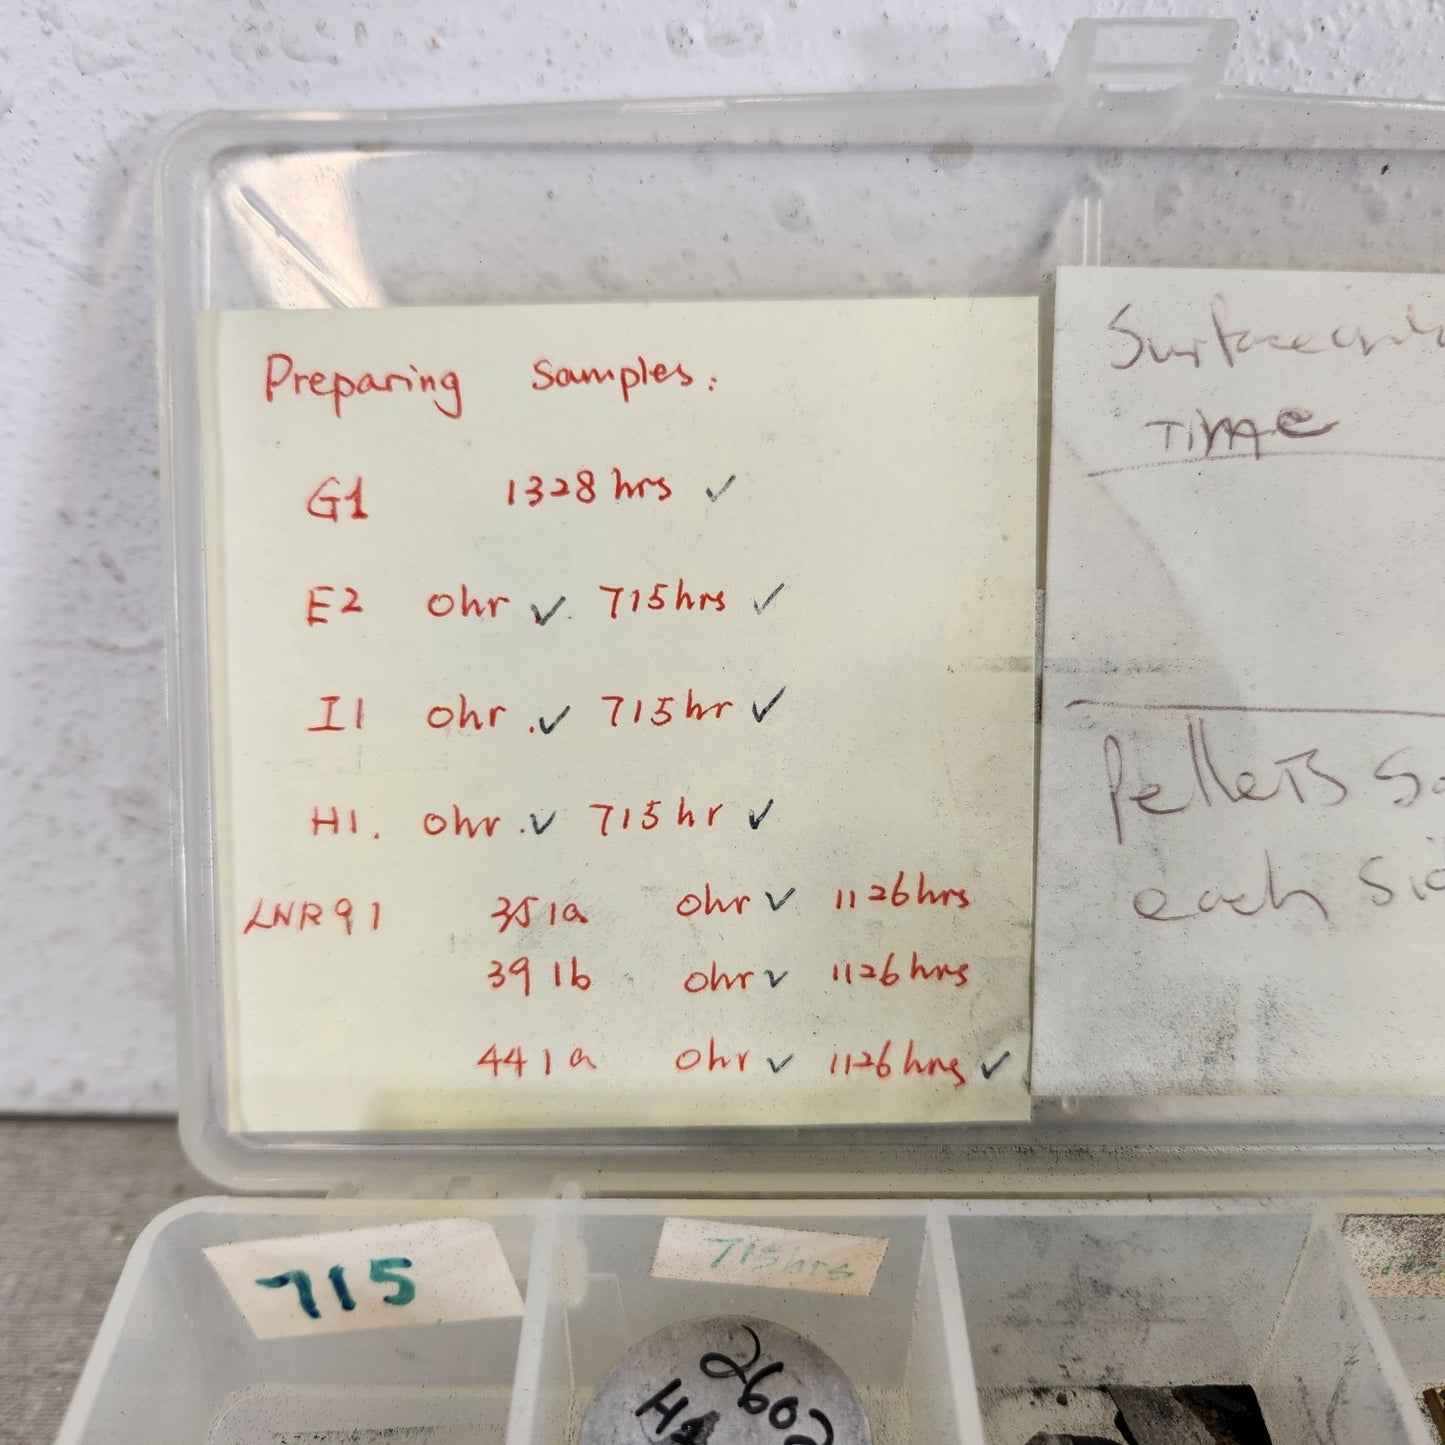 Preparing Samples:
G1 1328 hrs ✓
E2 0hr ✓ 715hrs ✓
I1 0hr ✓ 715hr ✓
H1. 0hr ✓ 715hr ✓
LNR91 351a 0hr ✓ 1126hrs
391b 0hr ✓ 1126hrs
441a 0hr ✓ 1126hrs ✓
Time
Pellets
each
715
715hrs
2602